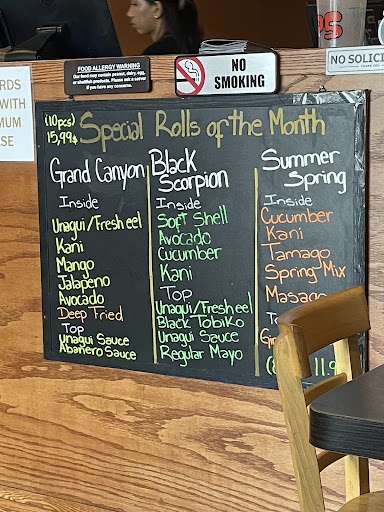 FOOD ALLERGY WARNING
Our food may contain peanut, dairy, egg,
or shellfish products. Please ask a server
if you have any concerns.
NO
SMOKING
NO SOLICI
RDS
WITH
MUM
SE
(10pcs)
15,99$
Special Rolls of the Month
Grand Canyon
Inside
Unagi/Fresh eel
Kani
Mango
Jalapeno
Avocado
Deep Fried
Top
Unagui Sauce
Abanero Sauce
Black
Scorpion
Inside
Soft Shell
Avocado
Cucumber
Kani
Top
Unagui/Fresh eel
Black Tobiko
Unagui Sauce
Regular Mayo
Summer
Spring
Inside
Cucumber
Kani
Tamago
Spring Mix
Masago
11.9